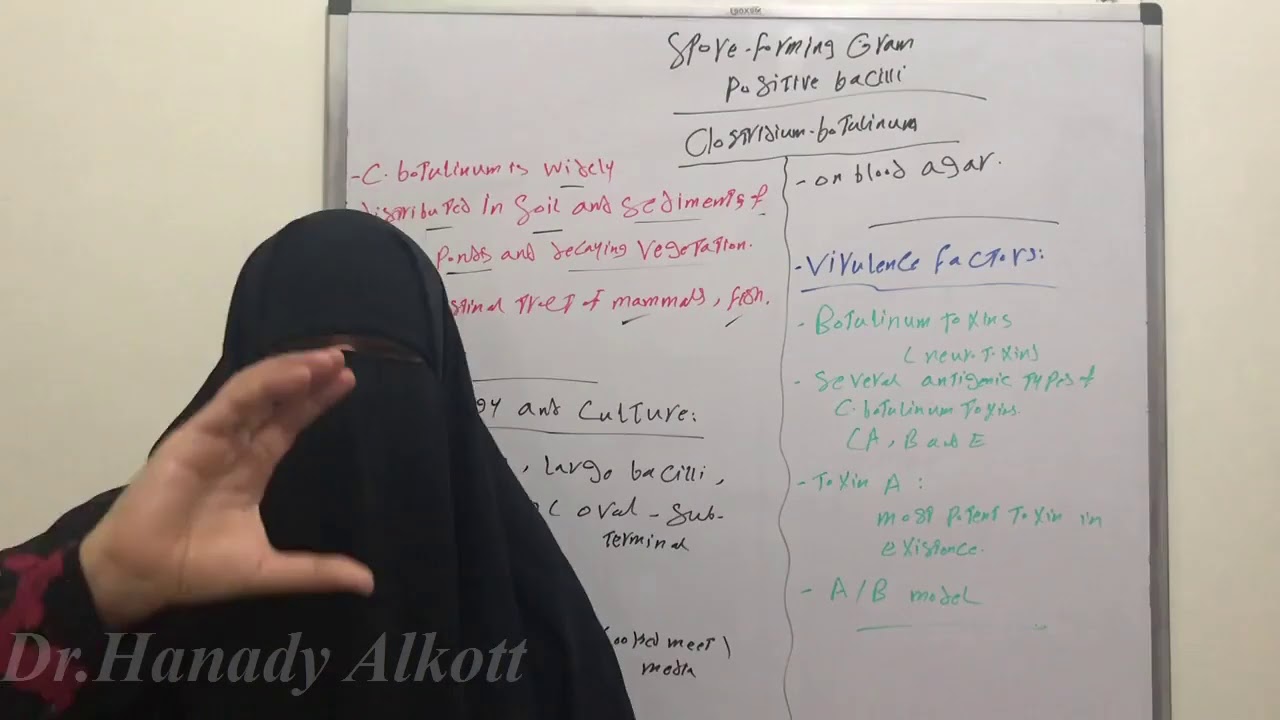 Spore-forming Gram
positive bacilli
Clostridium-botulinum
-C. botulinum is widely
distributed in soil and sediments of
ponds and decaying vegetation.
tract of mammals, fish.
and Culture:
, Large bacilli,
oval - sub-
terminal
cooked meet
media
- on blood agar.
-Virulence factors:
- Botulinum toxins
(neurotoxins)
- several antigenic types of
C. botulinum toxins.
(A, B and E
- Toxin A :
most potent toxin in
existence.
- A/B model
Dr.Hanady Alkott